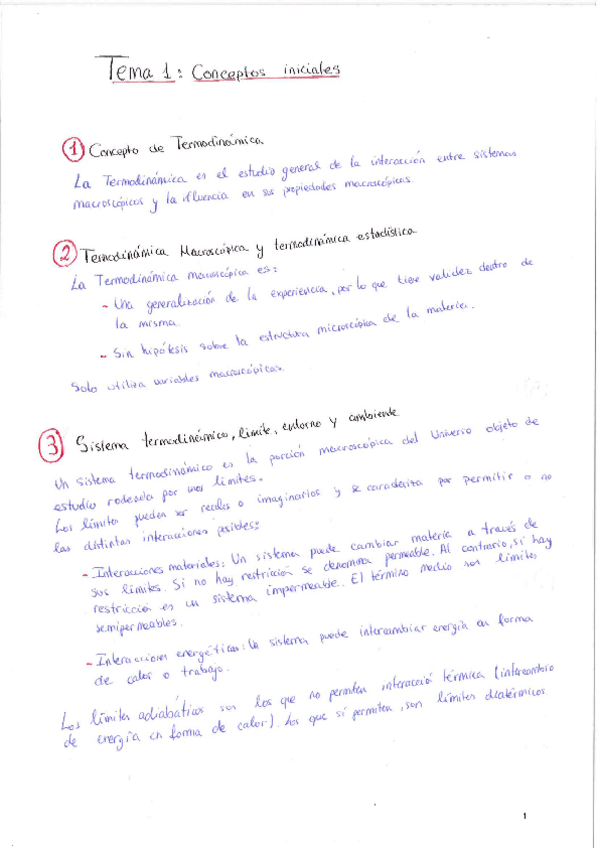 Tema 1: Conceptos iniciales
1 Concepto de Termodinámica
La Termodinámica es el estudio general de la interacción entre sistemas
macroscópicos y la influencia en sus propiedades macroscópicas.
2 Termodinámica Macroscópica y termodinámica estadística
La Termodinámica macroscópica es:
- Una generalización de la experiencia, por lo que tiene validez dentro de
la misma.
- Sin hipótesis sobre la estructura microscópica de la materia.
Solo utiliza variables macroscópicas.
3 Sistema termodinámico, límite, entorno y ambiente
Un sistema termodinámico es la porción macroscópica del Universo objeto de
estudio rodeada por unos límites.
Los límites pueden ser reales o imaginarios y se caracteriza por permitir o no
las distintas interacciones posibles:
- Interacciones materiales: Un sistema puede cambiar materia a través de
sus límites. Si no hay restricción se denomina permeable. Al contrario, si hay
restricción es un sistema impermeable. El término medio son límites
semipermeables.
- Interacciones energéticas: Un sistema puede intercambiar energía en forma
de calor o trabajo.
Los límites adiabáticos son los que no permiten interacció térmica (intercambio
de energía en forma de calor). Los que sí permiten, son límites diatérmicos.
1